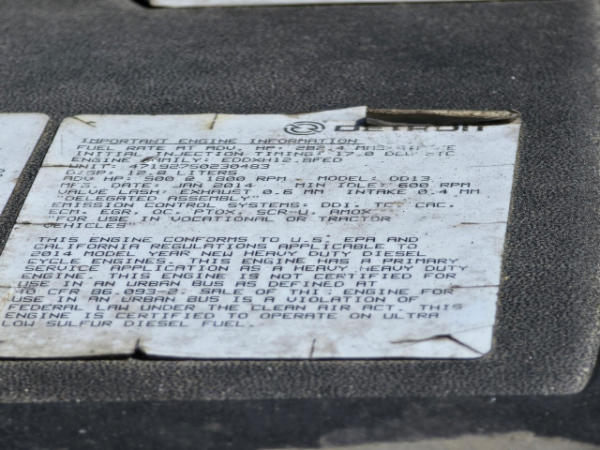 DETROIT
IMPORTANT ENGINE INFORMATION
FUEL RATE AT ADV. HP: 282.4
INITIAL INJECTION TIMING: 17.0
ENGINE FAMILY: EDDXH12.8FED
UNIT: 471927S0230483
DISP: 12.8 LITERS
ADV HP: 500 @ 1800 RPM MODEL: DD13
MFG. DATE: JAN 2014 MIN IDLE: 600 RPM
VALVE LASH: EXHAUST 0.6 MM INTAKE 0.4 MM
"DELEGATED ASSEMBLY"
EMISSION CONTROL SYSTEMS: DDI, TC, CAC,
ECM, EGR, OC, PTOX, SCR-U, AMOX
"FOR USE IN VOCATIONAL OR TRACTOR
VEHICLES"
THIS ENGINE CONFORMS TO U.S. EPA AND
CALIFORNIA REGULATIONS APPLICABLE TO
2014 MODEL YEAR NEW HEAVY DUTY DIESEL
CYCLE ENGINES. THIS ENGINE HAS A PRIMARY
SERVICE APPLICATION AS A HEAVY HEAVY DUTY
ENGINE. THIS ENGINE IS NOT CERTIFIED FOR
USE IN AN URBAN BUS AS DEFINED AT
40 CFR 86.093-2. SALE OF THIS ENGINE FOR
USE IN AN URBAN BUS IS A VIOLATION OF
FEDERAL LAW UNDER THE CLEAN AIR ACT. THIS
ENGINE IS CERTIFIED TO OPERATE ON ULTRA
LOW SULFUR DIESEL FUEL.